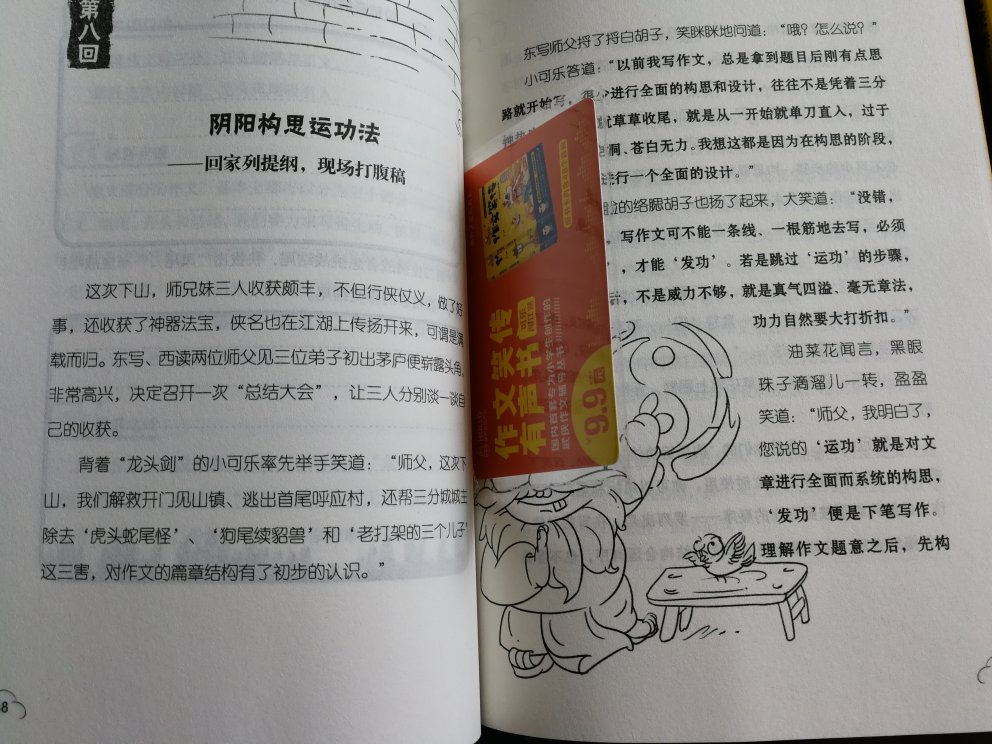 第八回
阴阳构思运功法
——回家列提纲，现场打腹稿
这次下山，师兄妹三人收获颇丰，不但行侠仗义，做了好
事，还收获了神器法宝，侠名也在江湖上传扬开来，可谓是满
载而归。东写、西读两位师父见三位弟子初出茅庐便崭露头角，
非常高兴，决定召开一次“总结大会”，让三人分别谈一谈自
己的收获。
背着“龙头剑”的小可乐率先举手笑道：“师父，这次下
山，我们解救开门见山镇、逃出首尾呼应村，还帮三分城城主
除去‘虎头蛇尾怪’、‘狗尾续貂兽’和‘老打架的三个儿子’
这三害，对作文的篇章结构有了初步的认识。”
8
东写师父捋了捋白胡子，笑眯眯地问道：“哦？怎么说？”
小可乐答道：“以前我写作文，总是拿到题目后刚有点思
路就开始写，很少进行全面的构思和设计，往往不是凭着三分
草草收尾，就是从一开始就单刀直入，过于
洞、苍白无力。我想这都是因为在构思的阶段，
进行一个全面的设计。”
的络腮胡子也扬了起来，大笑道：“没错，
写作文可不能一条线、一根筋地去写，必须
，才能‘发功’。若是跳过‘运功’的步骤，
，不是威力不够，就是真气四溢、毫无章法，
功力自然要大打折扣。”
油菜花闻言，黑眼
珠子滴溜儿一转，盈盈
笑道：“师父，我明白了，
您说的‘运功’就是对文
章进行全面而系统的构思，
‘发功’便是下笔写作。
理解作文题意之后，先构
作文笑传
有声书
国内首套专为小学生创作的
武侠作文辅导丛书
9.9